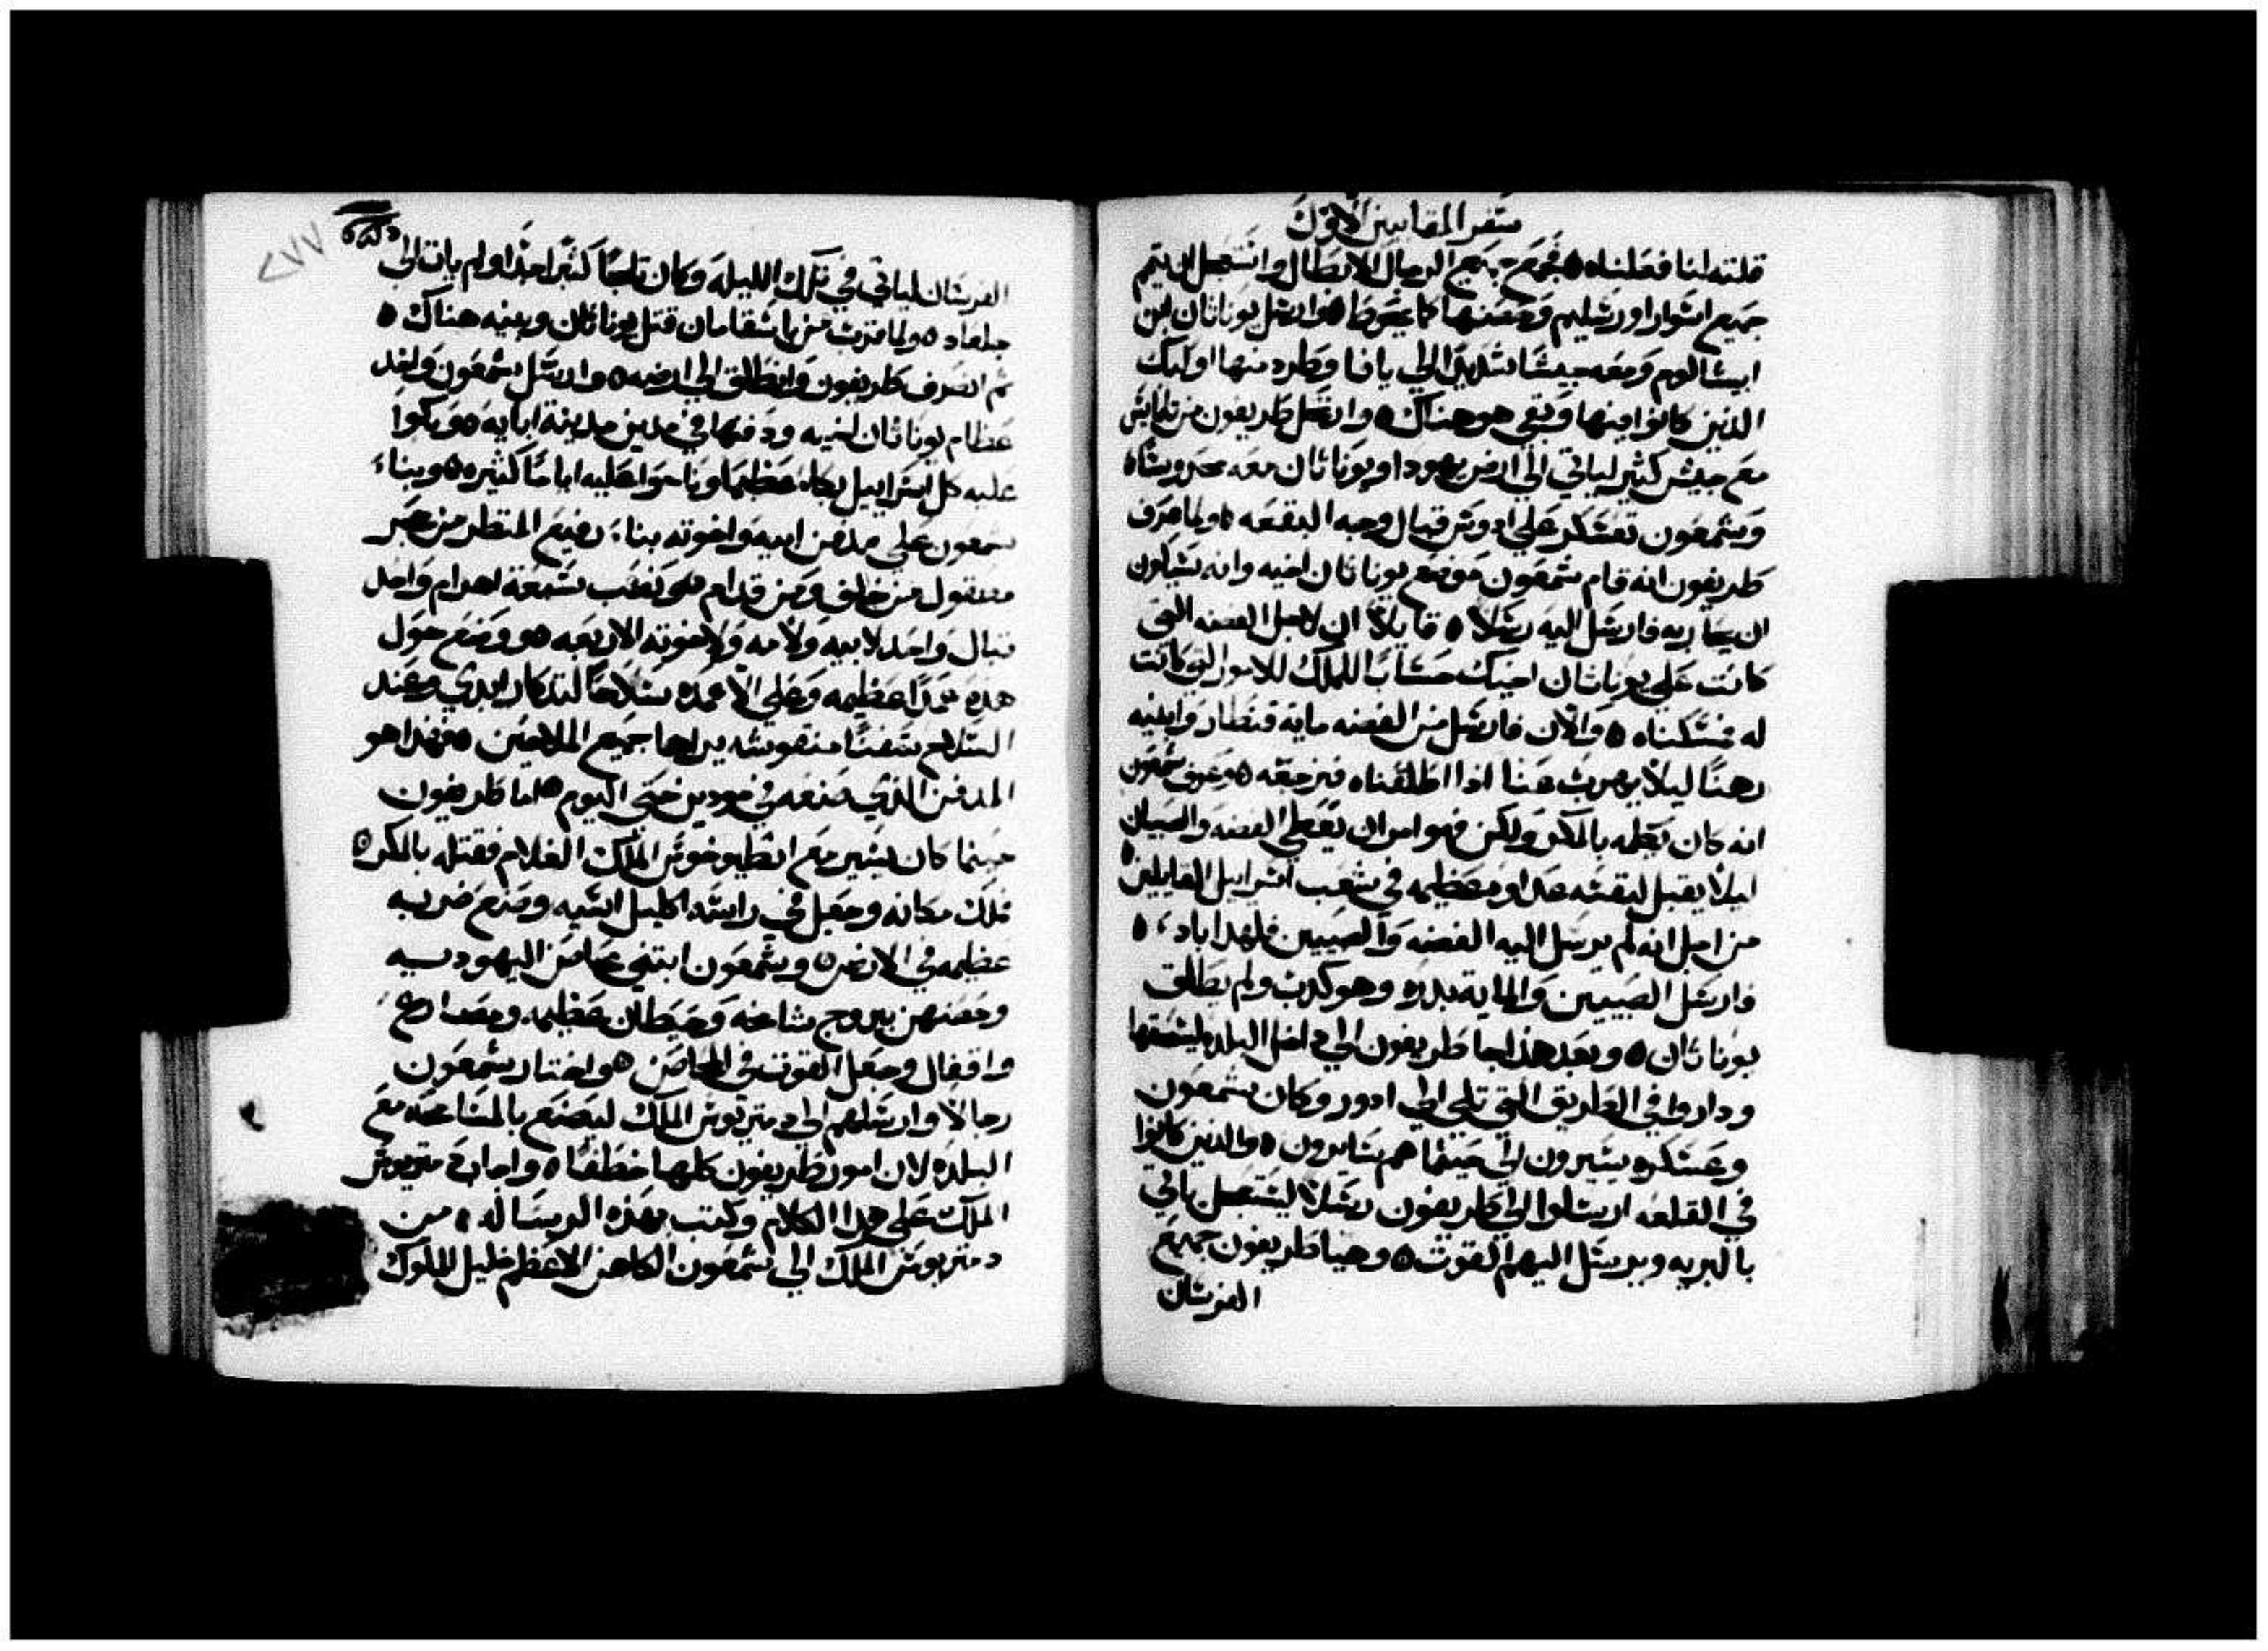 سفر المقابيين الاول
قلته لنا فعلناه ٥ فجمع جميع الرجال الابطال واستعجل ان يتم
جميع اسوار اورشليم وحصنها كما يحوط ٥ وارسل يوناثان ابن
ابيشالوم ومعه جيشا شديدا الي يافا وطرد منها اوليك
الذين كانوا فيها وبقي هو هناك ٥ وانتقل طريفون من تلمايس
مع جيش كثير لياتي الي ارض يهودا ويوناثان معه محروساه
وشمعون تعسكر علي ادوس قبال وجه البقعه ٥ ولما عرف
طريفون انه قام شمعون موضع يوناثان اخيه وانه
ان يحاربه فارسل اليه رسلا ٥ قايلا ان لاجل الفضه التي
كانت علي يوناثان اخيك حسابا للملك للامور التي كانت
له مسكناه ٥ والان فارسل من الفضه مايه قنطار وابنيه
رهنا ليلا يهرب عنا اذا اطلقناه فنرجعه ٥ وعرف شمعون
انه كان يكلمه بالمكر ولكن فهو امر ان تعطي الفضه والصبيان
ليلا يقبل لنفسه عداوه عظيمه في شعب اسراييل القايلين ٥
من اجل انه لم يرسل اليه الفضه والصبيين فلهذا اباد ٥
فارسل الصبيين والمايه بدره وهو كدب ولم يطلق
يوناثان ٥ وبعد هذا جا طريفون الي داخل البلده ليسحقها
وداروا في الطريق التي تلي الي ادور وكان شمعون
وعسكره يسيرون الي حيثما هم سايرون ٥ والذين كانوا
في القلعه ارسلوا الي طريفون رسلا ليستعجل ياتي
بالبريه ويرسل اليهم القوت ٥ وهيا طريفون جميع
الفرسان
٢٧٧
الفرسان لياتي في تلك الليله وكان ثلجا كثيرا جدا ولم يات الي
جلعاد ٥ ولما قرب من باسقامان قتل يوناثان وبنيه هناك ٥
ثم انصرف طريفون وانطلق الي ارضه ٥ وارسل شمعون واخد
عظام يوناثان اخيه ودفنها في مدين مدينة ابايه ٥ وبكوا
عليه كل اسراييل بكاء عظيما وناحوا عليه اياما كثيره ٥ وبناء
شمعون علي مدفن ابيه واخوته بناء رفيع المنظر من حجر
مصقول من خلف ومن قدام ٥ ونصب سبعة اهرام واحد
قبال واحد لابيه ولامه ولاخوته الاربعه ٥ ووضع حول
هذه عمدا عظيمه وعلي الاعمده سلاحا لتدكار ابدي وعند
السلاح سفنا منقوشه يراها جميع الملاحين ٥ فهذا هو
المدفن الذي صنعه في مودين حتي اليوم ٥ اما طريفون
حينما كان يسير مع انطيوخوس الملك الغلام فقتله بالمكر ٥
فملك مكانه وجعل في راسه اكليل اسيه وصنع ضربه
عظيمه في الارض ٥ وشمعون ابتني محاصن اليهوديه
وحصنهن ببروج شامخه وحيطان عظيمه ومصاريع
واقفال وجعل القوت في المحاصن ٥ واختار شمعون
رجالا وارسلهم الي دمتريوس الملك ليصنع بالمسامحه مع
البلده لان امور طريفون كلها خطفا ٥ واجاب دمتريوس
الملك علي هدا الكلام وكتب بهذه الرساله ٥ من
دمتريوس الملك الي شمعون الكاهن الاعظم خليل الملوك